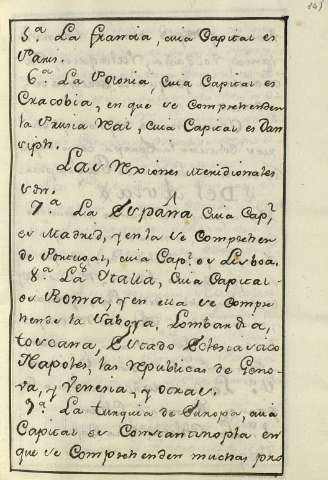 141
5.ª La francia, cuia Capital es
Paris.
6.ª La Polonia, Cuia Capital es
Cracobia, en que se Comprehenden
la Prusia Real, cuia Capital es Dan
Las Rexiones Meridionales
son.
7.ª La España Cuia Cap.l
es Madrid, y en la se Comprehen
de Portugal, cuia Cap.l es Lisboa.
8.ª La Ytalia, Cuia Capital
es Roma, y en ella se Compre
hende la Saboya, Lombardia,
toscana, Estado Eclesiastico
Napoles, las Republicas de Geno
va, y Venesia, y otras.
9.ª La turquia de Europa, cuia
Capital es Constantinopla en
que se Comprehenden muchas pro